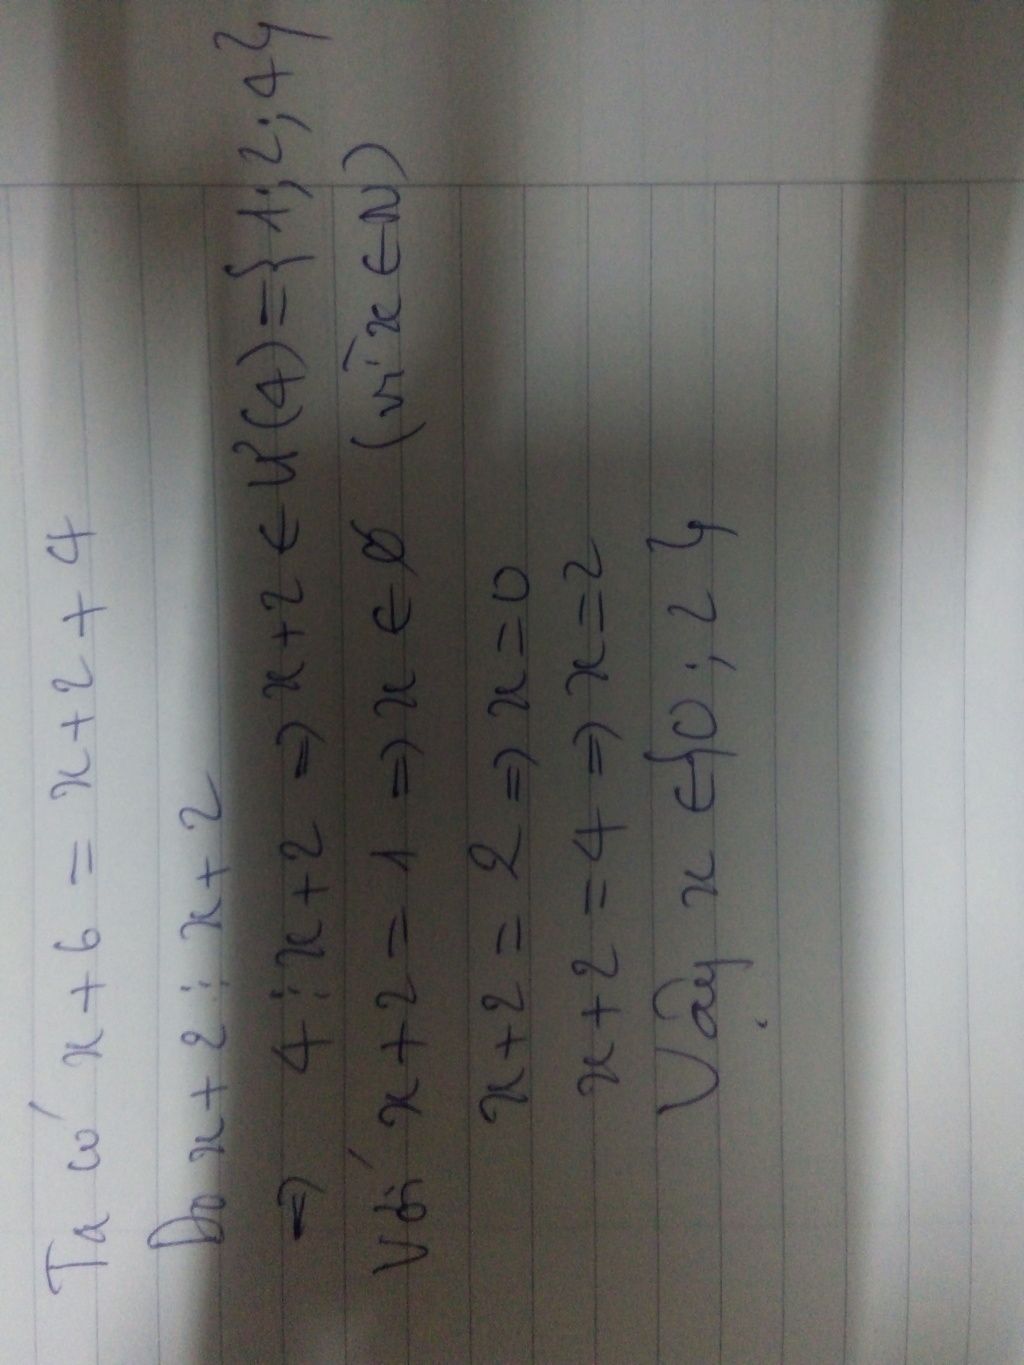 Ta có x + 6 = x + 2 + 4
Do x + 2 ⋮ x + 2
⇒ 4 ⋮ x + 2 ⇒ x + 2 ∈ Ư(4) = {1; 2; 4}
Với x + 2 = 1 ⇒ x ∈ ∅ (vì x ∈ N)
x + 2 = 2 ⇒ x = 0
x + 2 = 4 ⇒ x = 2
Vậy x ∈ {0; 2}